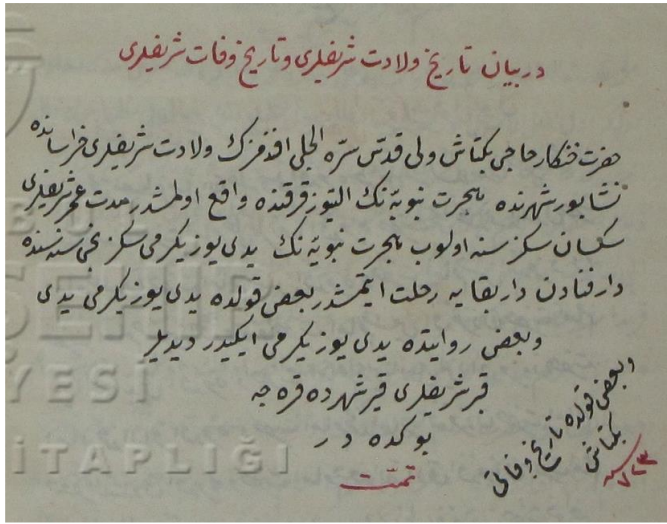 در بیان تاریخ ولادت شریفلری و تاریخ وفات شریفلری
حضرت خنکار حاجی بکتاش ولی قدس سره الجلی افندمزک ولادت شریفلری خراسانده
نشابور شهرنده هجرت نبویه نک التیوز قرقنده واقع اولمشدر مدت عمر شریفلری
سکسان سکز سنه اولوب هجرت نبویه نک یدی یوز یکرمی سکزنجی سنه سنده
دار فنادن دار بقایه رحلت ایتمشدر بعض قولده یدی یوز یکرمی یدی
و بعض روایتده یدی یوز یکرمی ایکیدر دیدیلر
قبر شریفلری قیرشهرده قره جه
بوکده در
تمت
و بعض قولده تاریخ وفاتی
بکتاش
سنه ٧٢٣
BU
ŞEHİR
YESİ
İTAPLIĞI